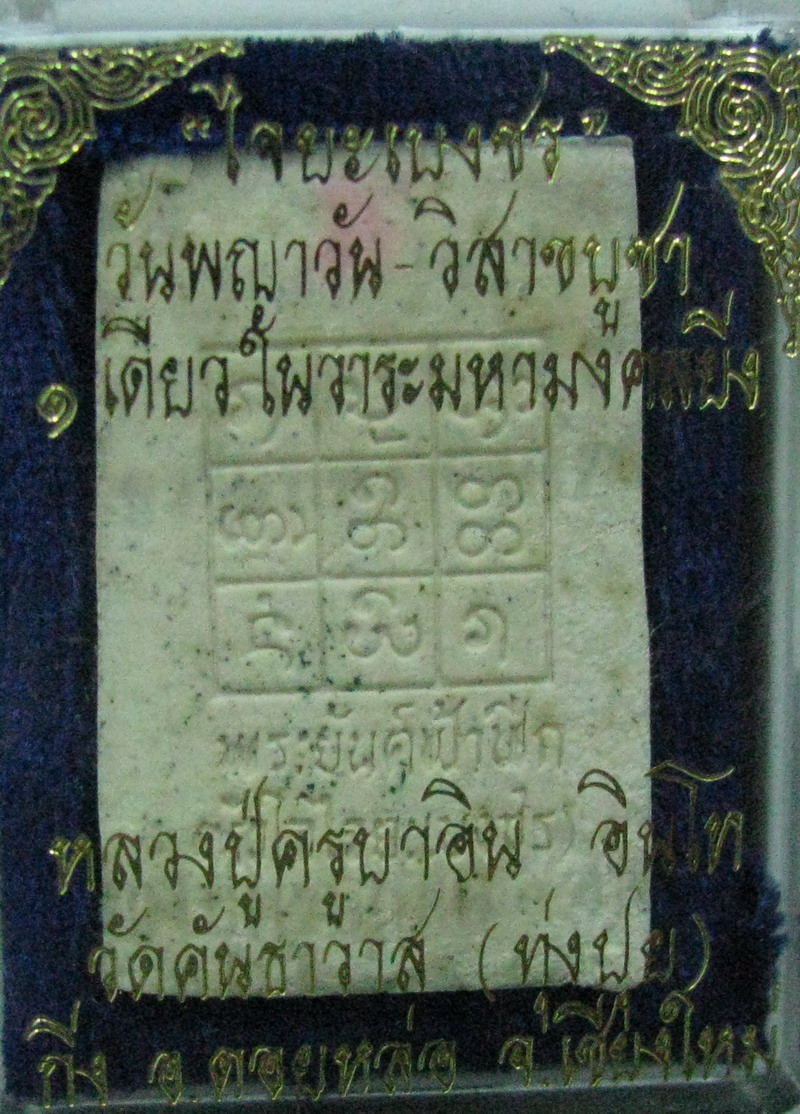 "ไจยะเบงชร"
วันพญาวัน - วิสาขบูชา
๑ เดียวในวาระมหามงคลยิ่ง
พระยันต์ฟ้าฟีก
หลวงปู่ครูบาอิน อินโท
วัดคันธาวาส (ทุ่งปุย)
กิ่ง อ.ดอยหล่อ จ.เชียงใหม่